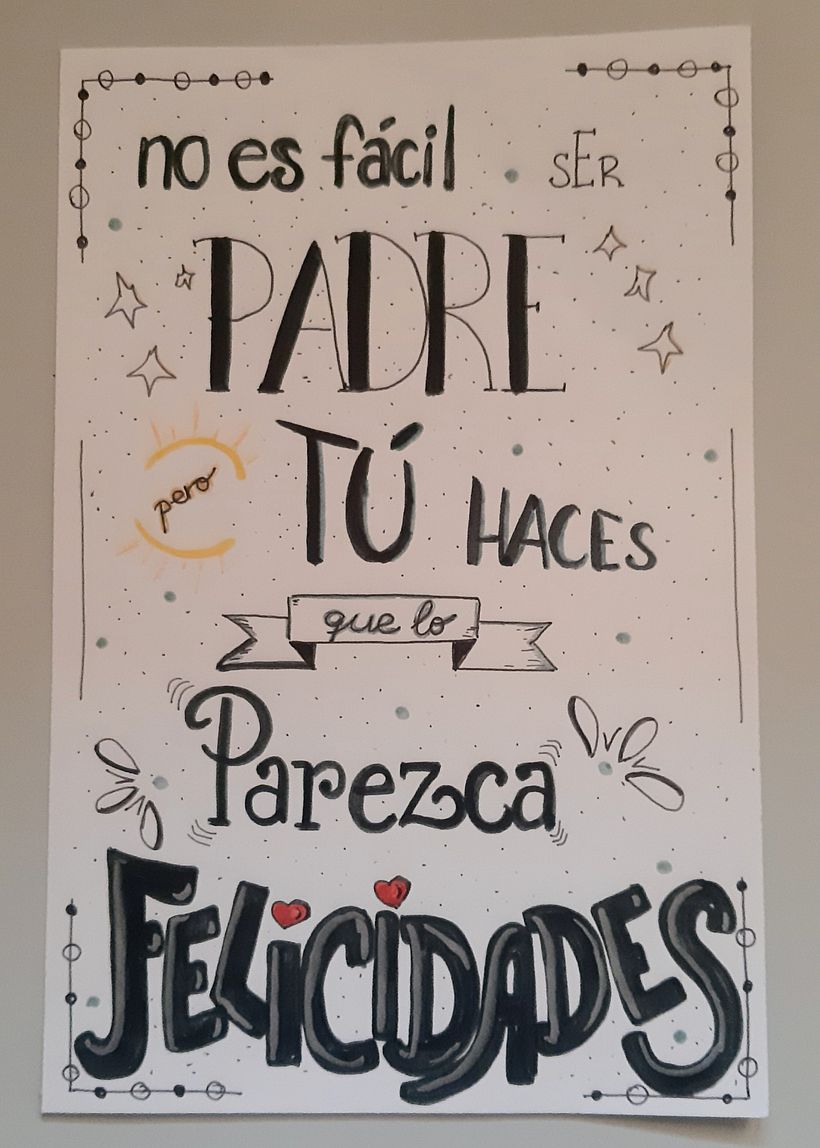 no es fácil SER
PADRE
pero TÚ HACES
que lo
Parezca
FELiCiDADES